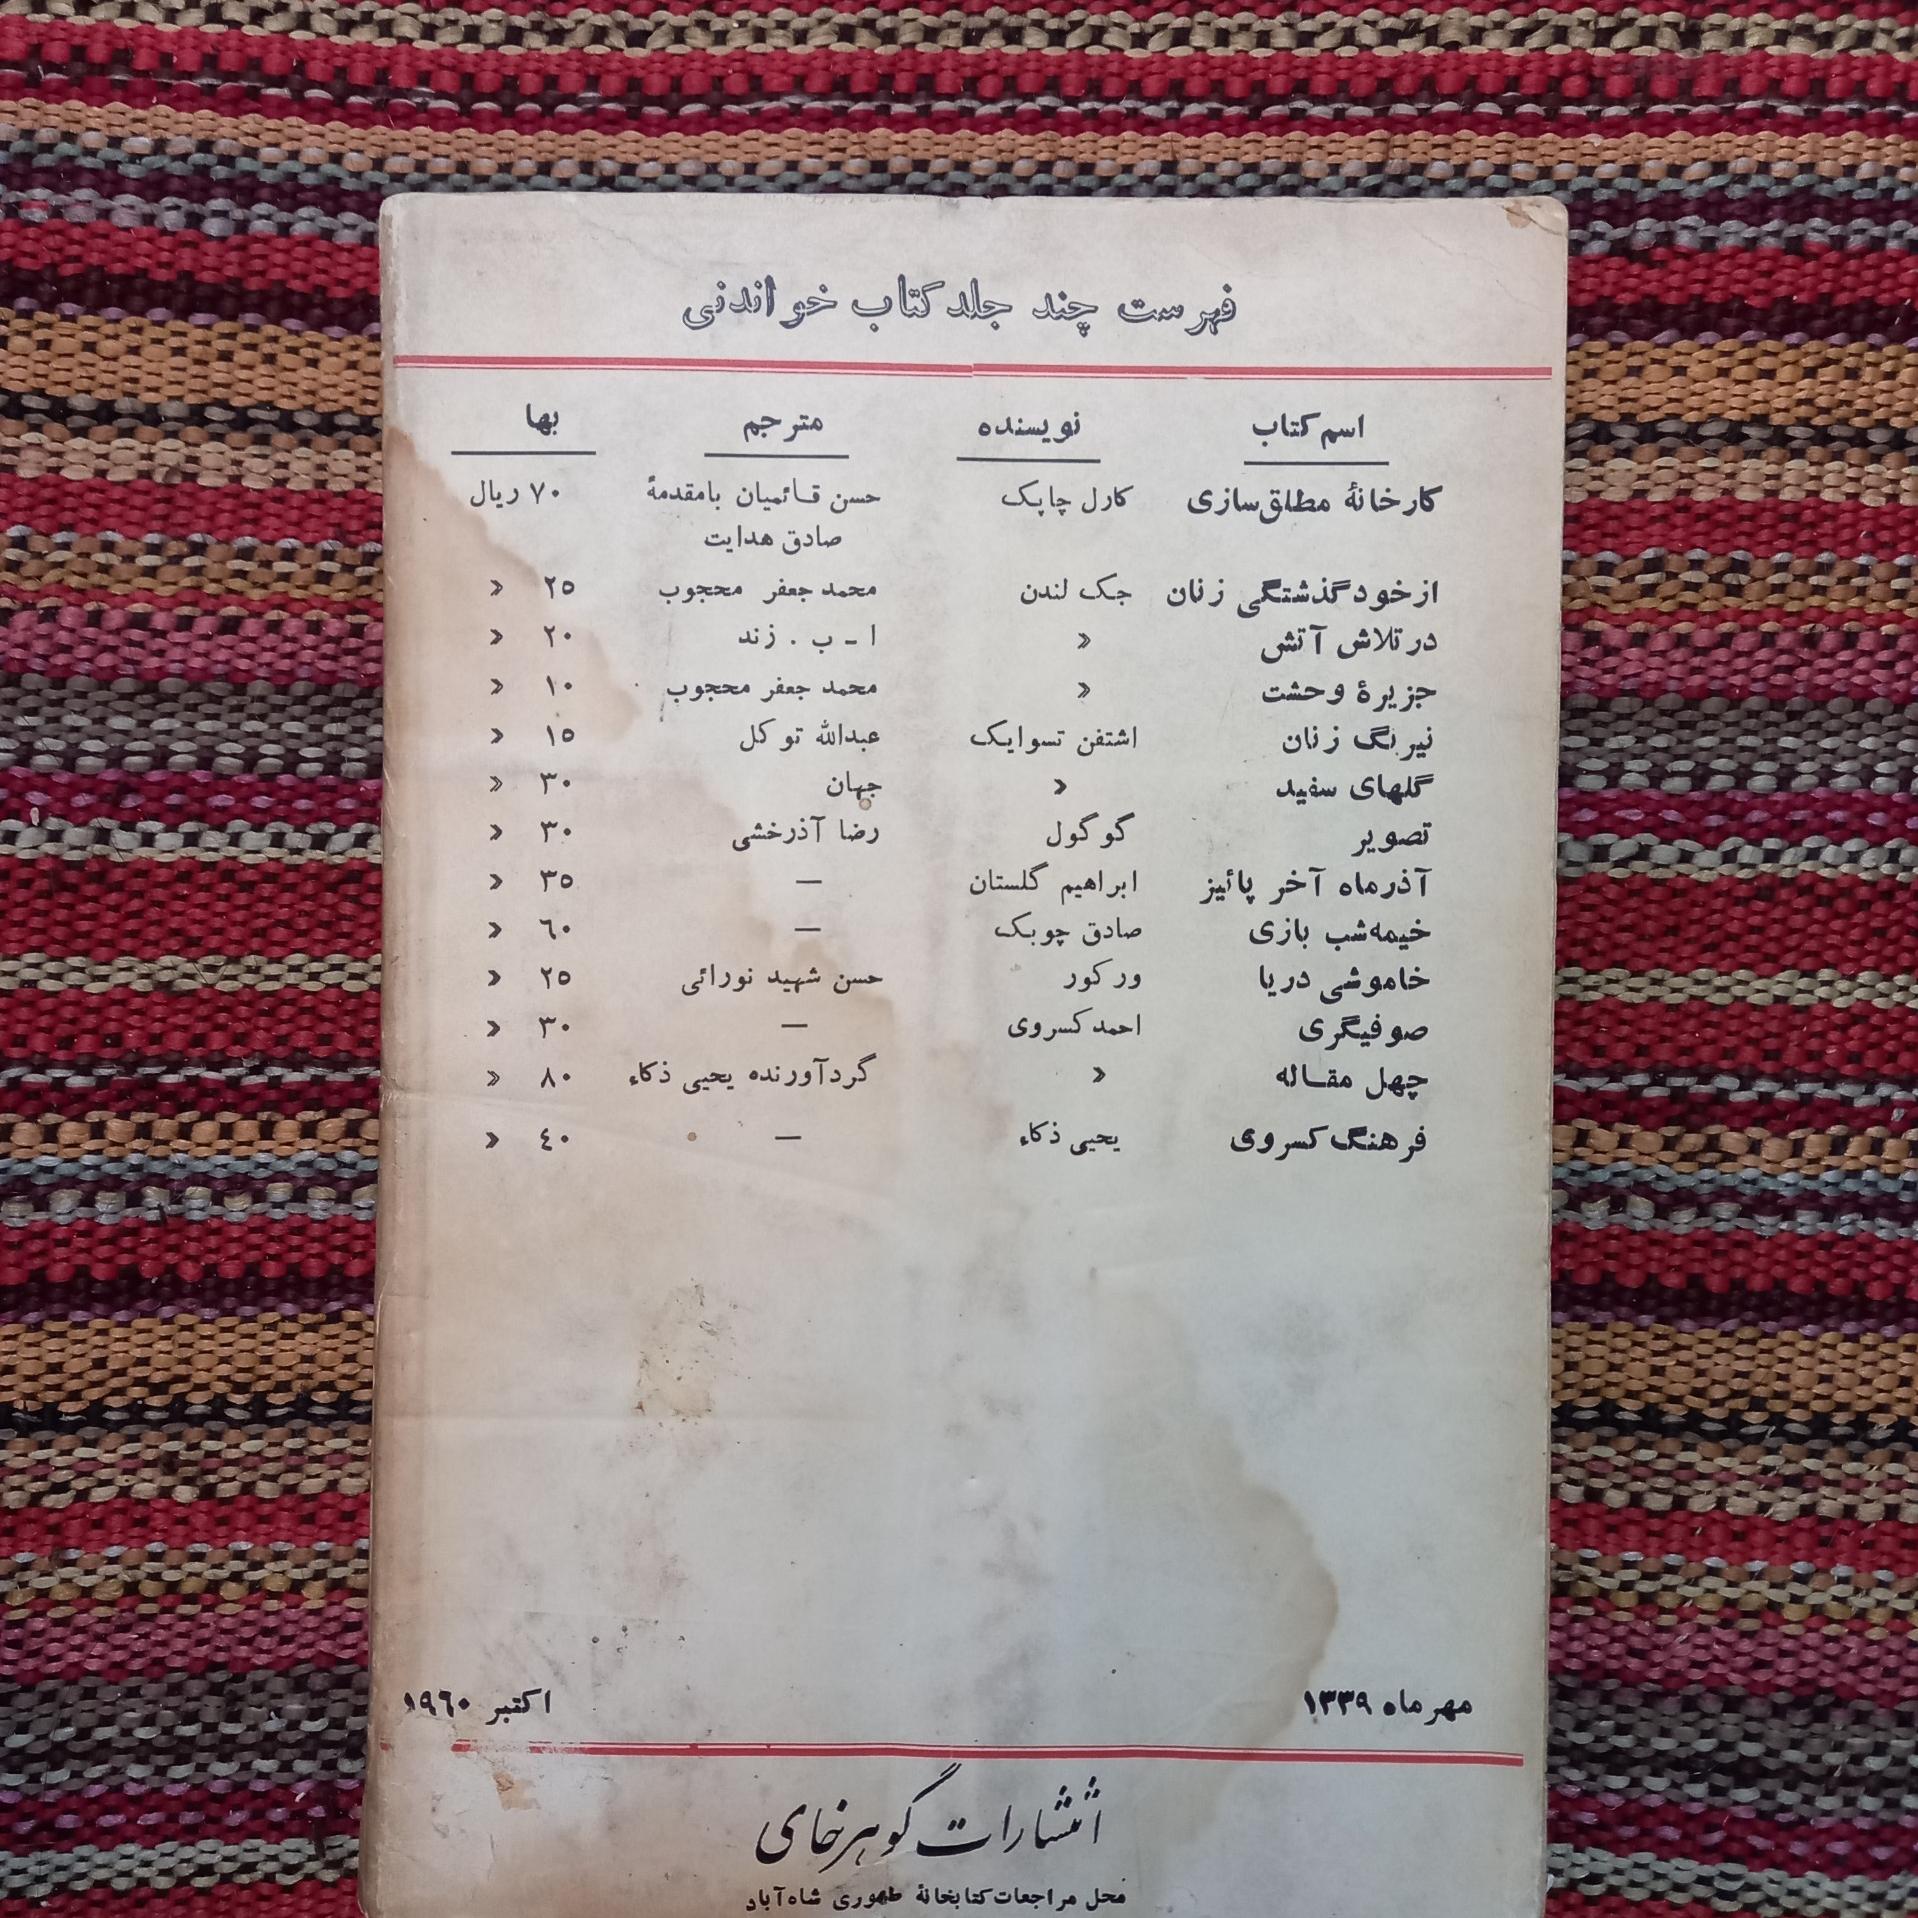 فهرست چند جلد کتاب خواندنی
اسم کتاب نویسنده مترجم بها
کارخانهٔ مطلق‌سازی کارل چاپک حسن قائمیان بامقدمهٔ ۷۰ ریال
صادق هدایت
ازخودگذشتگی زنان جک لندن محمد جعفر محجوب ۲۵ »
درتلاش آتش » ا - ب . زند ۲۰ »
جزیرهٔ وحشت » محمد جعفر محجوب ۱۰ »
نیرنگ زنان اشتفن تسوایک عبدالله توکل ۱۵ »
گلهای سفید » جهان ۳۰ »
تصویر گوگول رضا آذرخشی ۳۰ »
آذرماه آخر پائیز ابراهیم گلستان — ۳۵ »
خیمه‌شب بازی صادق چوبک — ۶۰ »
خاموشی دریا ورکور حسن شهید نورائی ۲۵ »
صوفیگری احمدکسروی — ۳۰ »
چهل مقاله » گردآورنده یحیی ذکاء ۸۰ »
فرهنگ کسروی یحیی ذکاء — ۴۰ »
مهرماه ۱۳۳۹ اکتبر ۱۹۶۰
انتشارات گوهرخای
محل مراجعات کتابخانهٔ طهوری شاه‌آباد